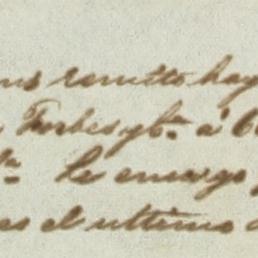 ns remitto hay
Forbes y Ca. á
la. Le encargo
es el ultimo